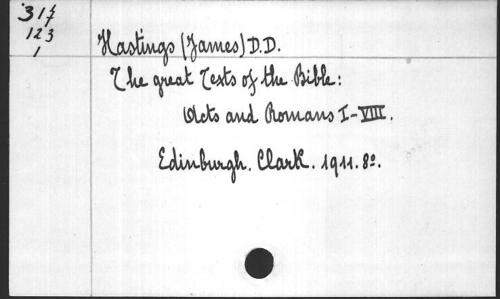 314
123
1
Hastings (James) D.D.
The great Texts of the Bible:
Acts and Romans I-VIII.
Edinburgh. Clark. 1911. 8º.